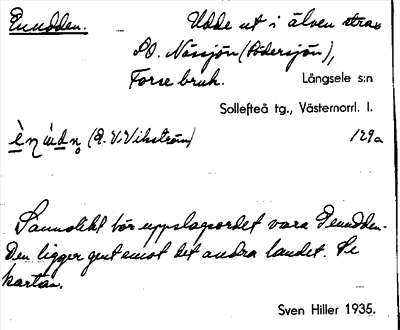 Enudden. Udde ut i älven strax
SO. Nässjön (Södersjön),
Forse bruk. Långsele s:n
Sollefteå tg., Västernorrl. l.
(E. V. Vikström) 129a
Sannolikt bör uppslagsordet vara Genudden.
Den ligger gent emot det andra landet. Se
kartan.
Sven Hiller 1935.